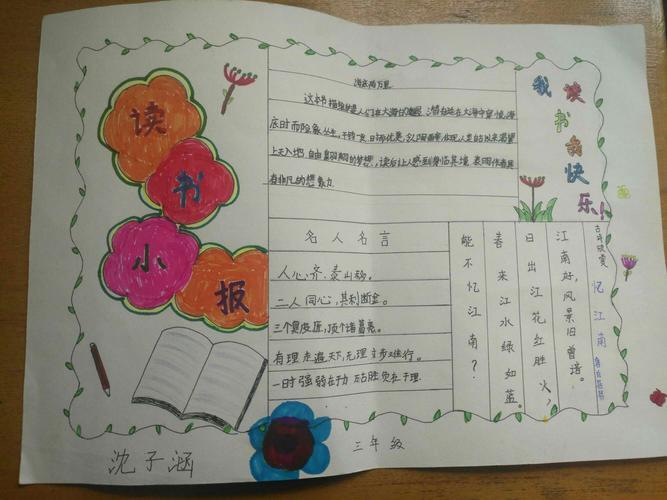 读书小报
海底两万里
这本书描绘的是人们在大海里的
底时而险象丛生,千钧一发,时而优美,
上天入地、自由翱翔的梦想,读后让人感到身临其境,表现作者具
有非凡的想象力
我读书我快乐!
名人名言
人心齐,泰山移。
二人同心,其利断金。
三个臭皮匠,顶个诸葛亮。
有理走遍天下,无理寸步难行。
一时强弱在于力,千古胜负在于理
古诗欣赏
忆江南
江南好,风景旧曾谙。
日出江花红胜火,
春来江水绿如蓝。
能不忆江南?
沈子涵
三年级